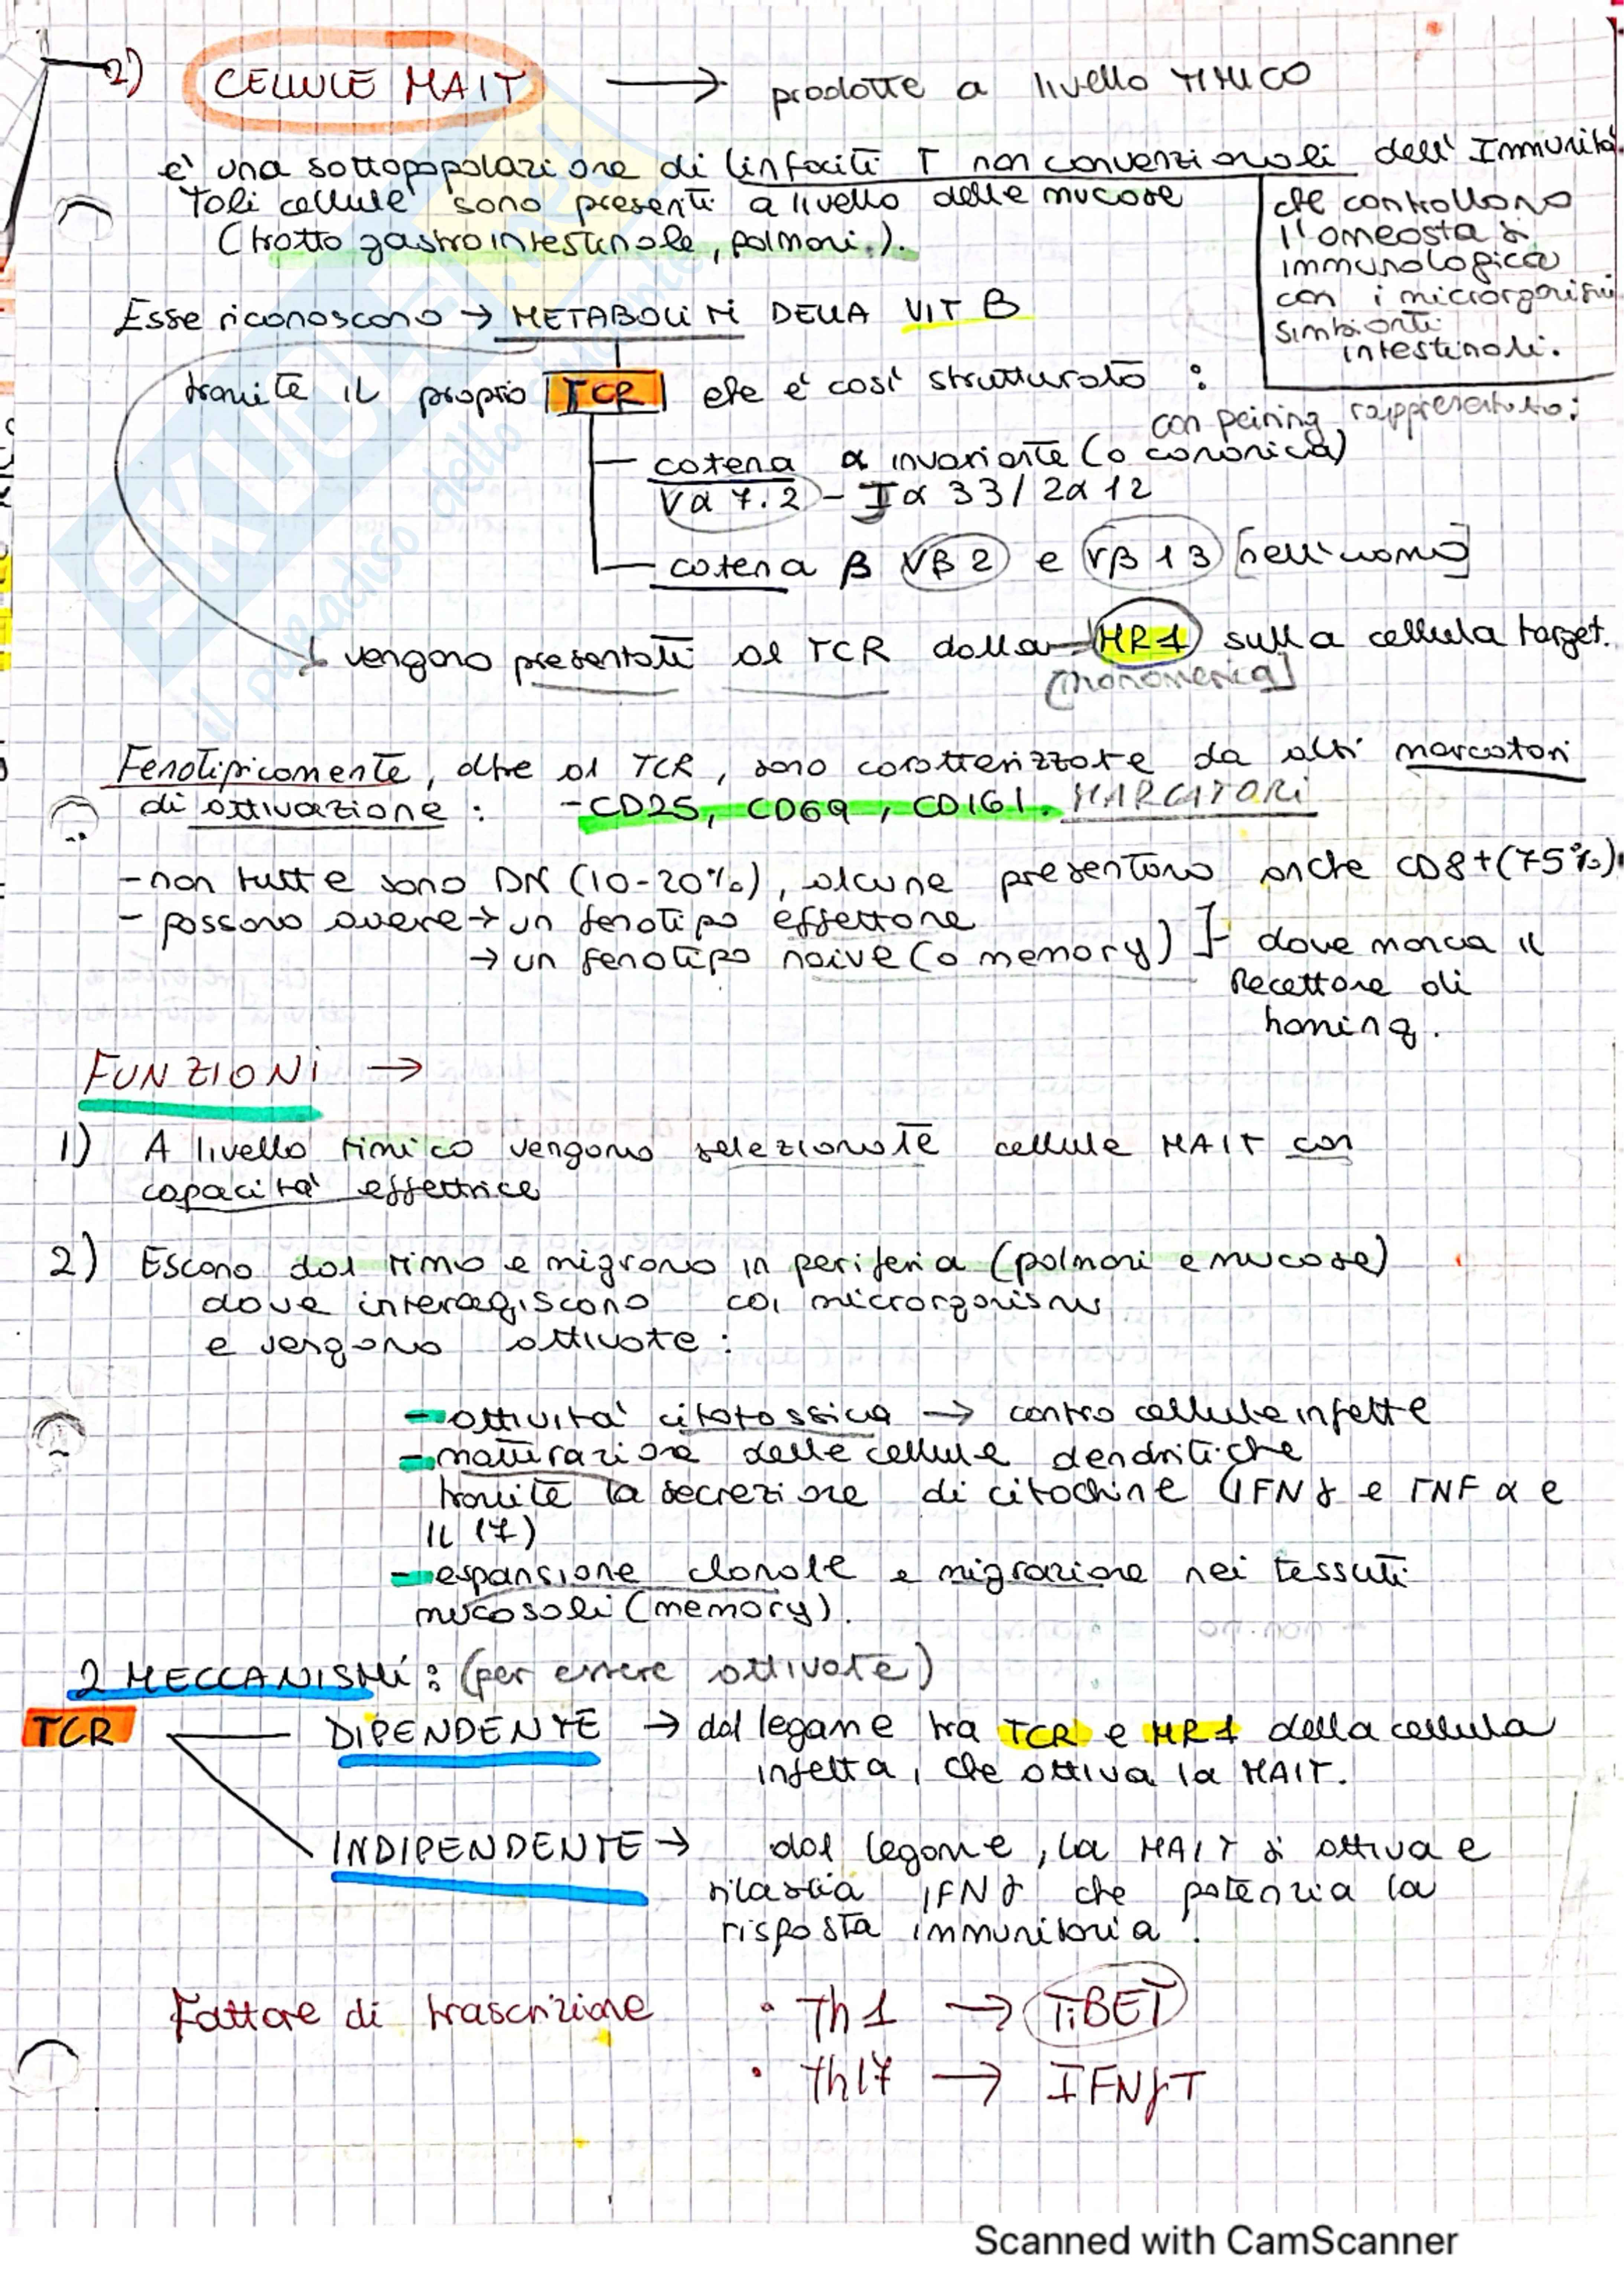 2) CELLULE MAIT → prodotte a livello TIMICO
e' una sottopopolazione di linfociti T non convenzionali dell' Immunità
Tali cellule sono presenti a livello delle mucose
(tratto gastrointestinale, polmoni.).
che controllano
l'omeostasi
immunologica
con i microrganismi
simbionti
intestinali.
Esse riconoscono → METABOLITI DELLA VIT B
tramite il proprio TCR che e' così strutturato :
con peiring rappresentato:
catena α invariante (o canonica)
Vα 7.2 - Jα 33 / 2α 12
catena β Vβ2 e Vβ13 [nell'uomo]
vengono presentati al TCR dalla MR1 sulla cellula target.
[monomerica]
Fenotipicamente, oltre al TCR, sono caratterizzate da altri marcatori
di attivazione : - CD25, CD69, CD161. MARCATORI
- non tutte sono DN (10-20%), alcune presentano anche CD8+ (75%)
- possono avere → un fenotipo effettore
→ un fenotipo naive (o memory) ]- dove manca il
Recettore di
homing.
FUNZIONI →
1) A livello timico vengono selezionate cellule MAIT con
capacità effettrice
2) Escono dal timo e migrano in periferia (polmoni e mucose)
dove interagiscono coi microrganismi
e vengono attivate :
- attività citotossica → contro cellule infette
- maturazione delle cellule dendritiche
tramite la secrezione di citochine (IFNγ e TNF α e
IL 17)
- espansione clonale e migrazione nei tessuti
mucosali (memory).
2 MECCANISMI : (per essere attivate)
TCR DIPENDENTE → dal legame tra TCR e MR1 della cellula
infetta, che attiva la MAIT.
INDIPENDENTE → dal legame, la MAIT si attiva e
rilascia IFNγ che potenzia la
risposta immunitaria.
Fattore di trascrizione • Th1 → TiBET
• Th17 → IFNγT
Scanned with CamScanner
il paradiso dello studente